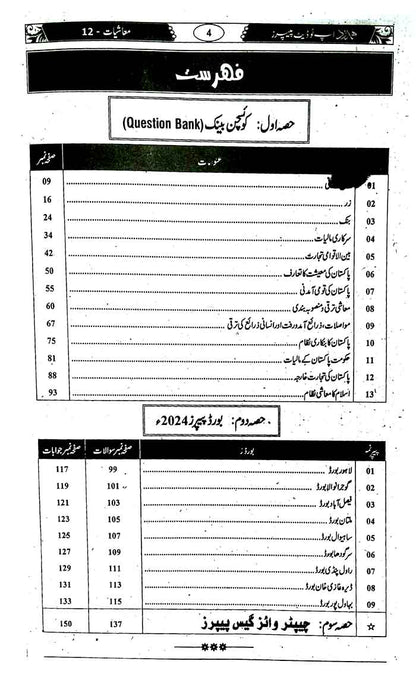 معاشیات - 12
4
اپ ٹو ڈیٹ پیپرز
فہرست
حصہ اول: کوئسچن بینک (Question Bank)
عنوانات صفحہ نمبر
01 09
02 زر 16
03 بنک 24
04 سرکاری مالیات 34
05 بین الاقوامی تجارت 42
06 پاکستان کی معیشت کا تعارف 50
07 پاکستان کی قومی آمدنی 55
08 معاشی ترقی و منصوبہ بندی 60
09 مواصلات، ذرائع آمدورفت اور انسانی ذرائع کی ترقی 67
10 پاکستان کا بنکاری نظام 75
11 حکومت پاکستان کے مالیات 81
12 پاکستان کی تجارت خارجہ 88
13 اسلام کا معاشی نظام 93
حصہ دوم: بورڈ پیپرز 2024ء
پیپر نمبر بورڈز صفحہ نمبر سوالات صفحہ نمبر جوابات
01 لاہور بورڈ 99 117
02 گوجرانوالا بورڈ 101 119
03 فیصل آباد بورڈ 103 121
04 ملتان بورڈ 105 123
05 ساہیوال بورڈ 107 125
06 سرگودھا بورڈ 109 127
07 راولپنڈی بورڈ 111 129
08 ڈیرہ غازی خان بورڈ 113 131
09 بہاولپور بورڈ 115 133
☆ حصہ سوم: چیپٹر وائز گیس پیپرز 137 150